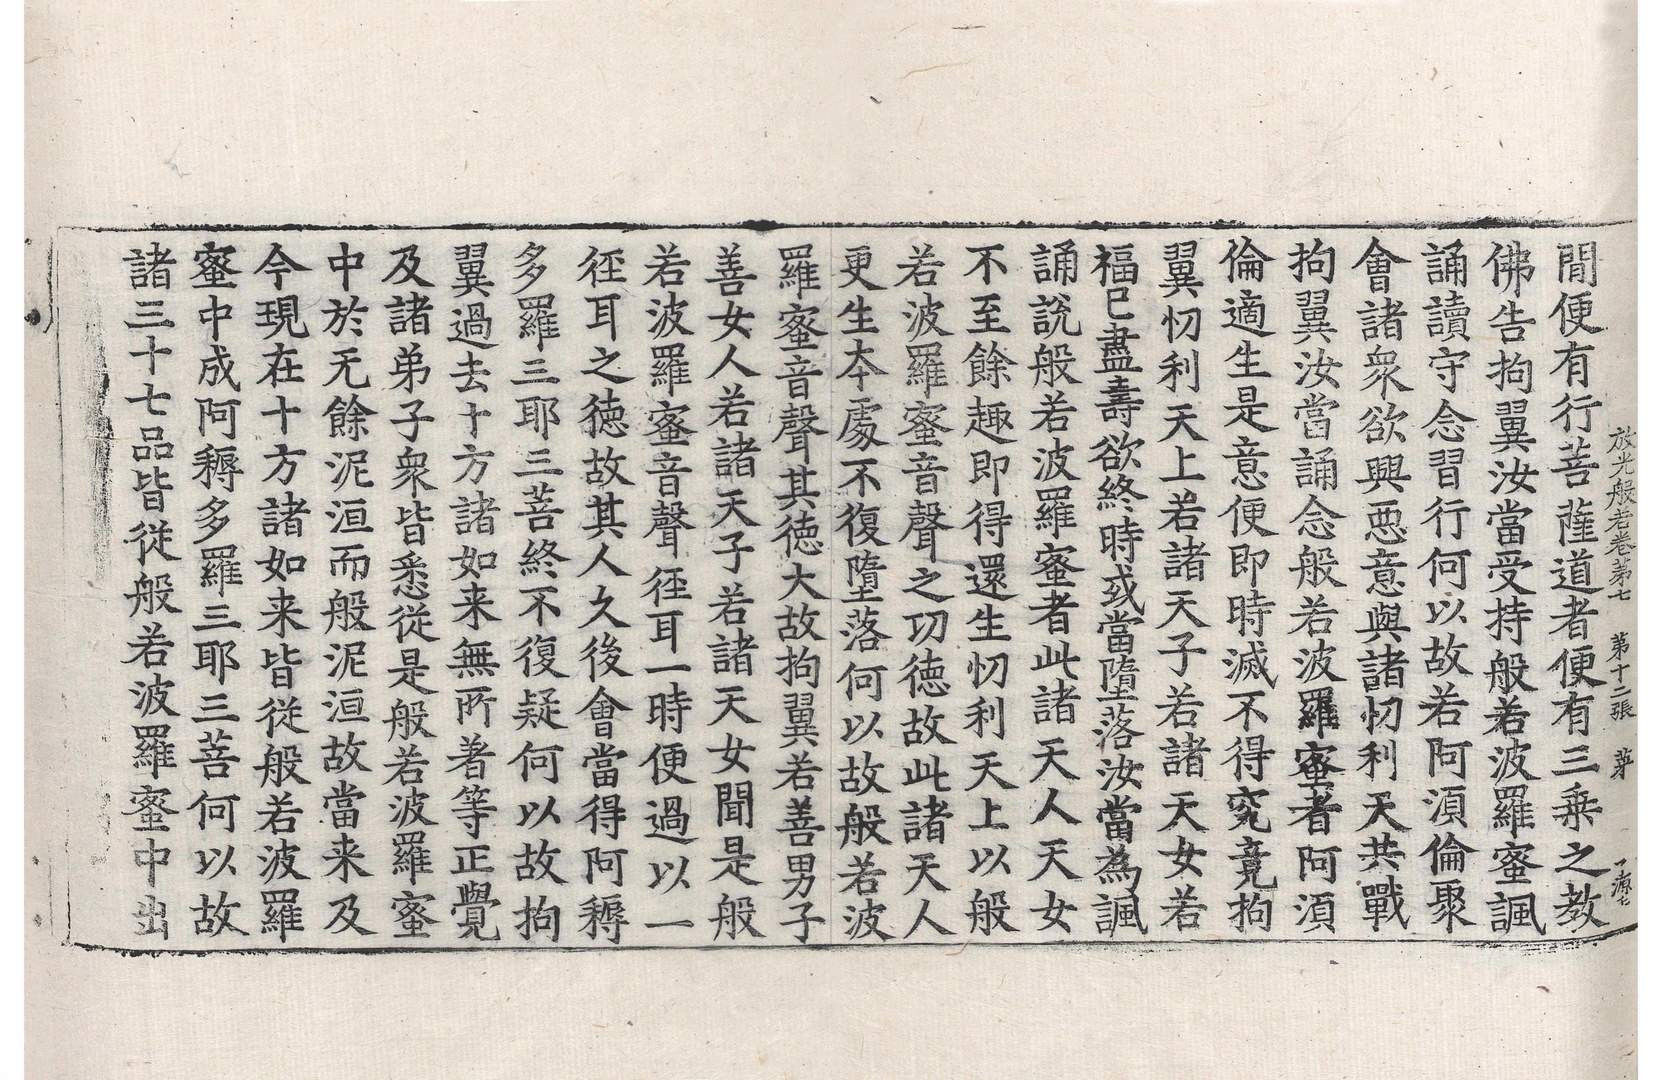 放光般若卷第七　第十二張　芥
閒便有行菩薩道者便有三乗之教
佛告拘翼汝當受持般若波羅蜜諷
誦讀守念習行何以故若阿湏倫聚
會諸衆欲興惡意與諸忉利天共戰
拘翼汝當誦念般若波羅蜜者阿湏
倫適生是意便即時滅不得究竟拘
翼忉利天上若諸天子若諸天女若
福已盡壽欲終時或當墮落汝當為諷
誦說般若波羅蜜者此諸天人天女
不至餘趣即得還生忉利天上以般
若波羅蜜音聲之功德故此諸天人
更生本處不復墮落何以故般若波
羅蜜音聲其德大故拘翼若善男子
善女人若諸天子若諸天女聞是般
若波羅蜜音聲徑耳一時便過以一
徑耳之德故其人久後會當得阿耨
多羅三耶三菩終不復疑何以故拘
翼過去十方諸如来無所著等正覺
及諸弟子衆皆悉從是般若波羅蜜
中於无餘泥洹而般泥洹故當来及
今現在十方諸如来皆從般若波羅
蜜中成阿耨多羅三耶三菩何以故
諸三十七品皆從般若波羅蜜中出